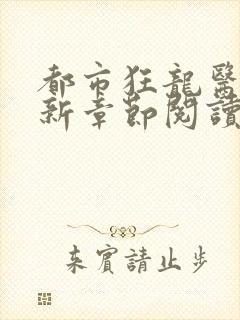 都市狂龍醫
新章節閱讀
来賓請止步